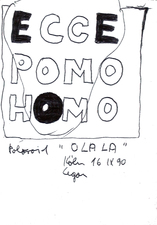 ECCE
POMO
HOMO
Polaroid "OLALA"
Köln 16 IX 90